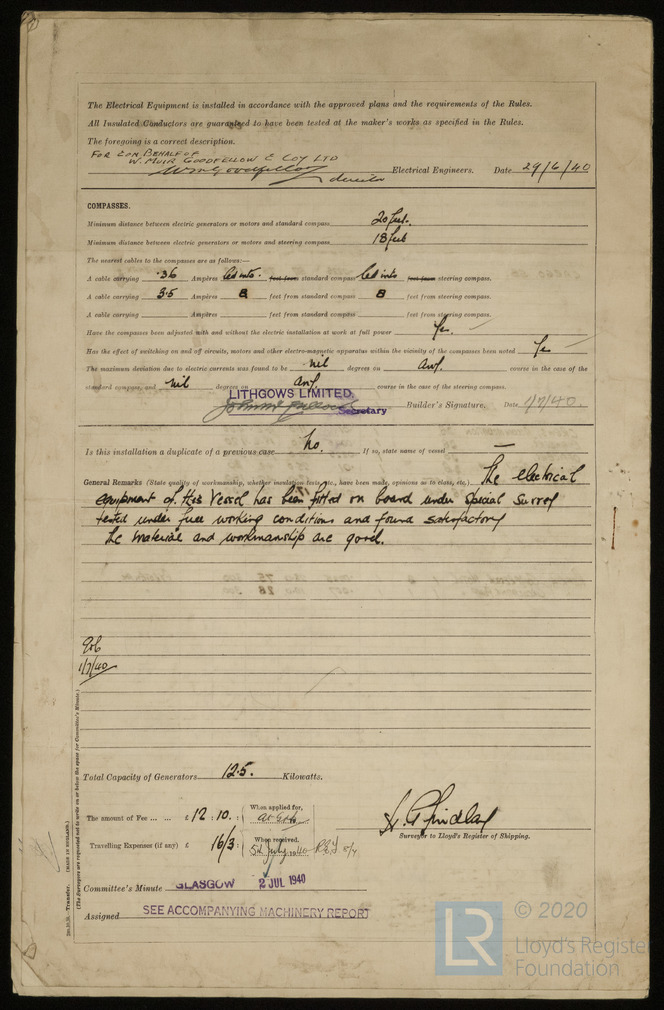 The Electrical Equipment is installed in accordance with the approved plans and the requirements of the Rules.
All Insulated Conductors are guaranteed to have been tested at the maker's works as specified in the Rules.
The foregoing is a correct description.
FOR & ON BEHALF OF
W. MUIR GOODFELLOW & COY LTD
Wm Goodfellow director Electrical Engineers. Date 29/6/40
COMPASSES.
Minimum distance between electric generators or motors and standard compass 20 feet.
Minimum distance between electric generators or motors and steering compass 18 feet
The nearest cables to the compasses are as follows:—
A cable carrying .36 Ampères led into feet from standard compass led into feet from steering compass.
A cable carrying 3.5 Ampères 8 feet from standard compass 8 feet from steering compass.
A cable carrying Ampères feet from standard compass feet from steering compass.
Have the compasses been adjusted with and without the electric installation at work at full power Yes.
Has the effect of switching on and off circuits, motors and other electro-magnetic apparatus within the vicinity of the compasses been noted Yes
The maximum deviation due to electric currents was found to be nil degrees on any course in the case of the
standard compass, and nil degrees on any course in the case of the steering compass.
LITHGOWS LIMITED.
Secretary Builder's Signature. Date 1/7/40.
Is this installation a duplicate of a previous case No. If so, state name of vessel —
General Remarks (State quality of workmanship, whether insulation tests, etc., have been made, opinions as to class, etc.) The electrical
equipment of this Vessel has been fitted on board under Special Survey
tested under full working conditions and found satisfactory
the material and workmanship are good.
1/7/40
(The Surveyors are requested not to write on or below the space for Committee's Minute.)
Total Capacity of Generators 12.5. Kilowatts.
The amount of Fee ... ... £ 12 . 10 . : When applied for,
Travelling Expenses (if any) £ 16/3 : When received,
Surveyor to Lloyd's Register of Shipping.
Committee's Minute GLASGOW 2 JUL 1940
Assigned SEE ACCOMPANYING MACHINERY REPORT
Transfer. (MADE IN ENGLAND.)
LR © 2020
Lloyd's Register
Foundation